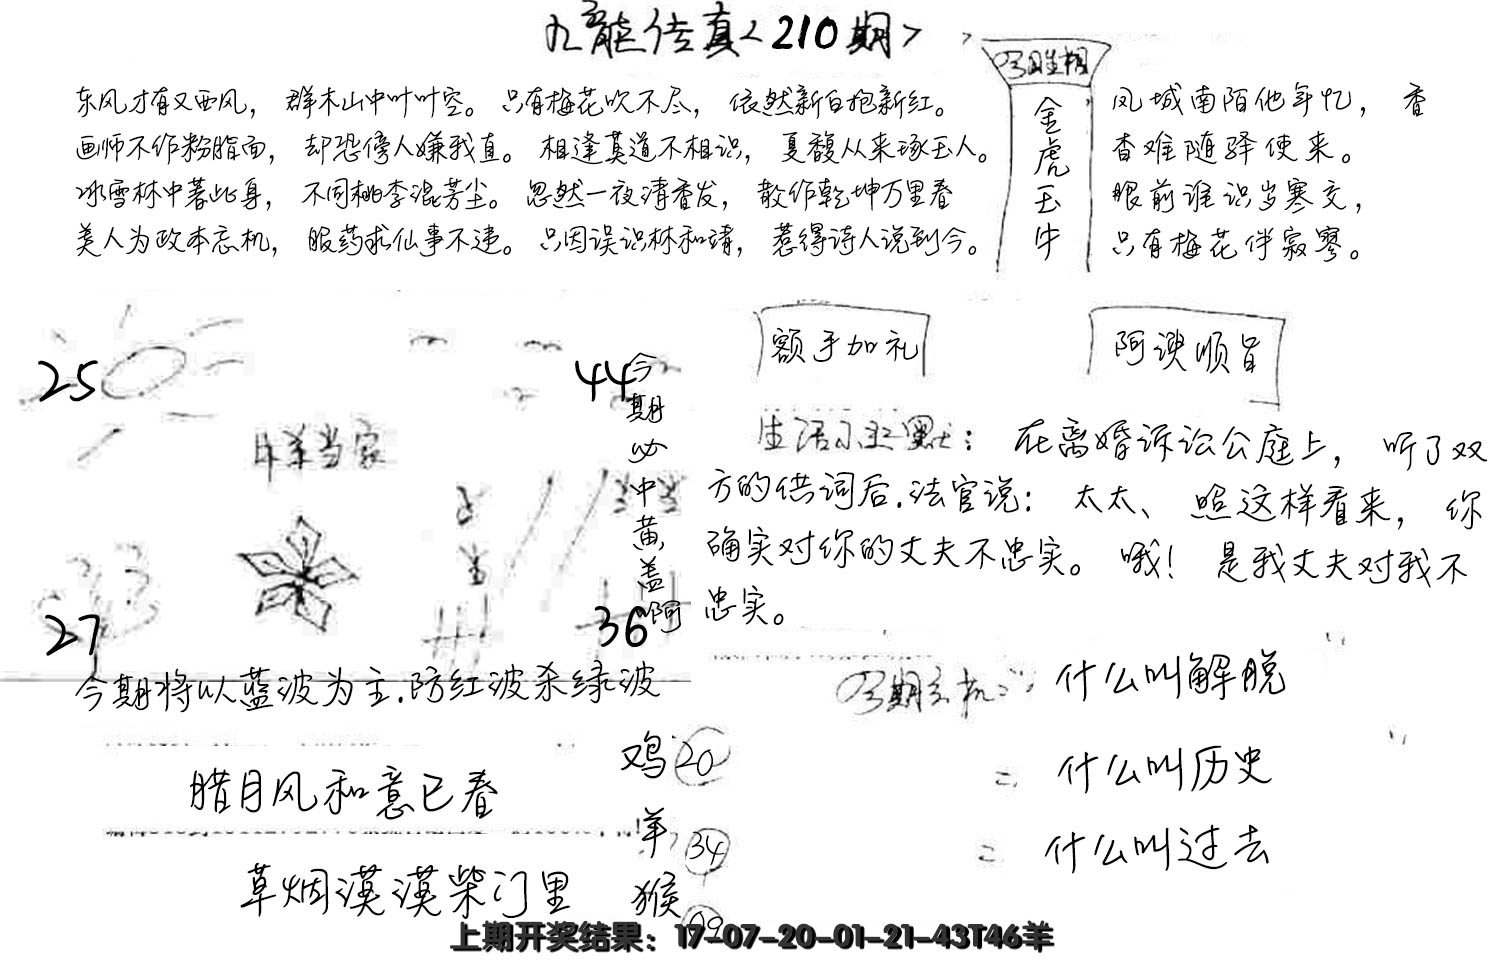 九龍传真<210期>
东风才有又西风，群木山中叶叶空。只有梅花吹不尽，依然新白抱新红。
画师不作粉脂面，却恐傍人嫌我直。相逢莫道不相识，夏馥从来琢玉人。
冰雪林中著此身，不同桃李混芳尘。忽然一夜清香发，散作乾坤万里春
美人为政本忘机，服药求仙事不违。只因误识林和靖，惹得诗人说到今。
金虎玉牛
凤城南陌他年忆，香
杳难随驿使来。
眼前谁识岁寒交，
只有梅花伴寂寥。
额手加礼
阿谀顺旨
25
44
今期必中黄盖啊
当家
27
36
今期将以蓝波为主.防红波杀绿波
生活小幽默：在离婚诉讼公庭上，听了双
方的供词后.法官说：太太、照这样看来，你
确实对你的丈夫不忠实。哦！是我丈夫对我不
忠实。
什么叫解脱
什么叫历史
什么叫过去
腊月风和意已春
草烟漠漠柴门里
鸡20
羊34
猴09
上期开奖结果：17-07-20-01-21-43T46羊